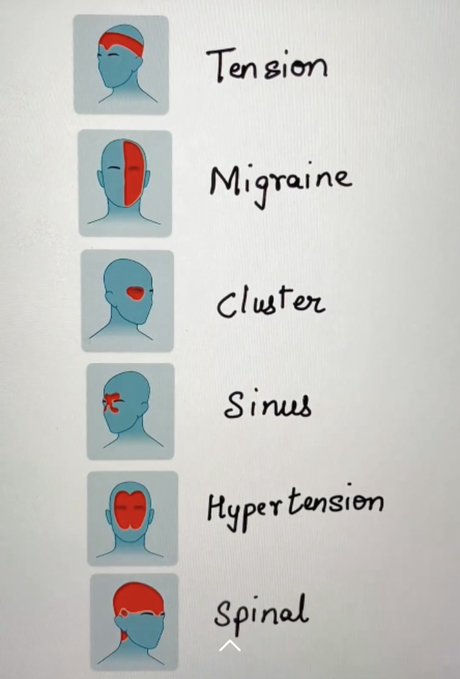 Tension
Migraine
Cluster
Sinus
Hypertension
Spinal